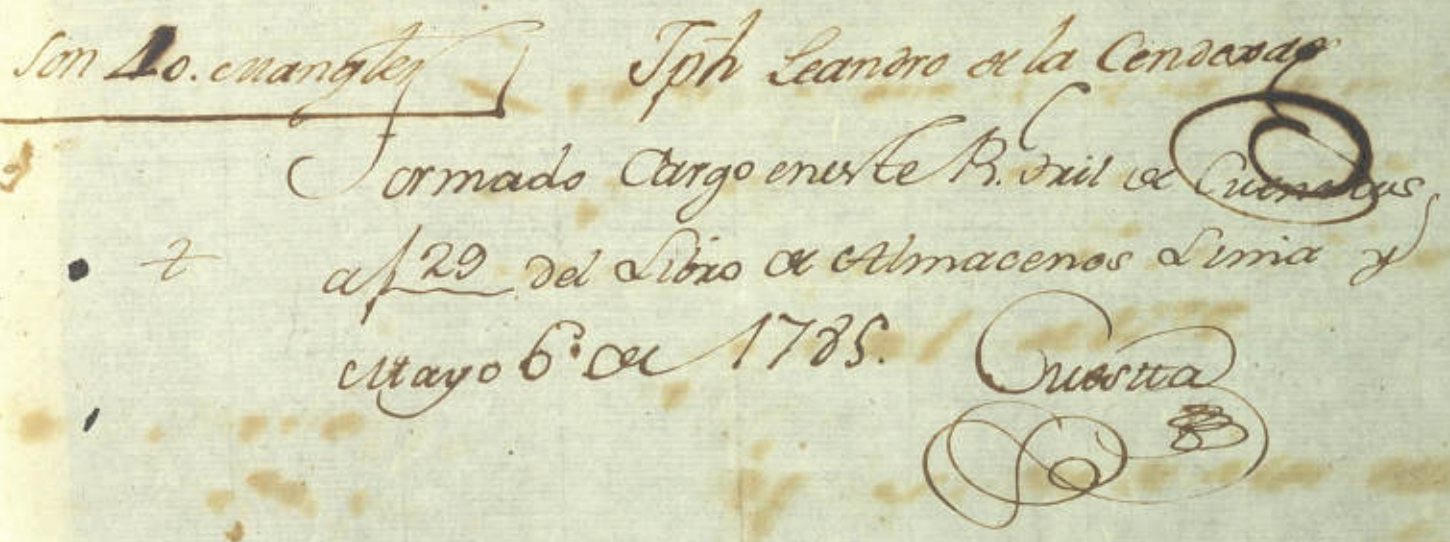 Son 40. Mangles Jph Leandro de la Cendexa
Formado Cargo en este R. Tril de Cuentas
a f 29 del Libro de Almacenes Lima y
Mayo 6. de 1785.
Cuesta